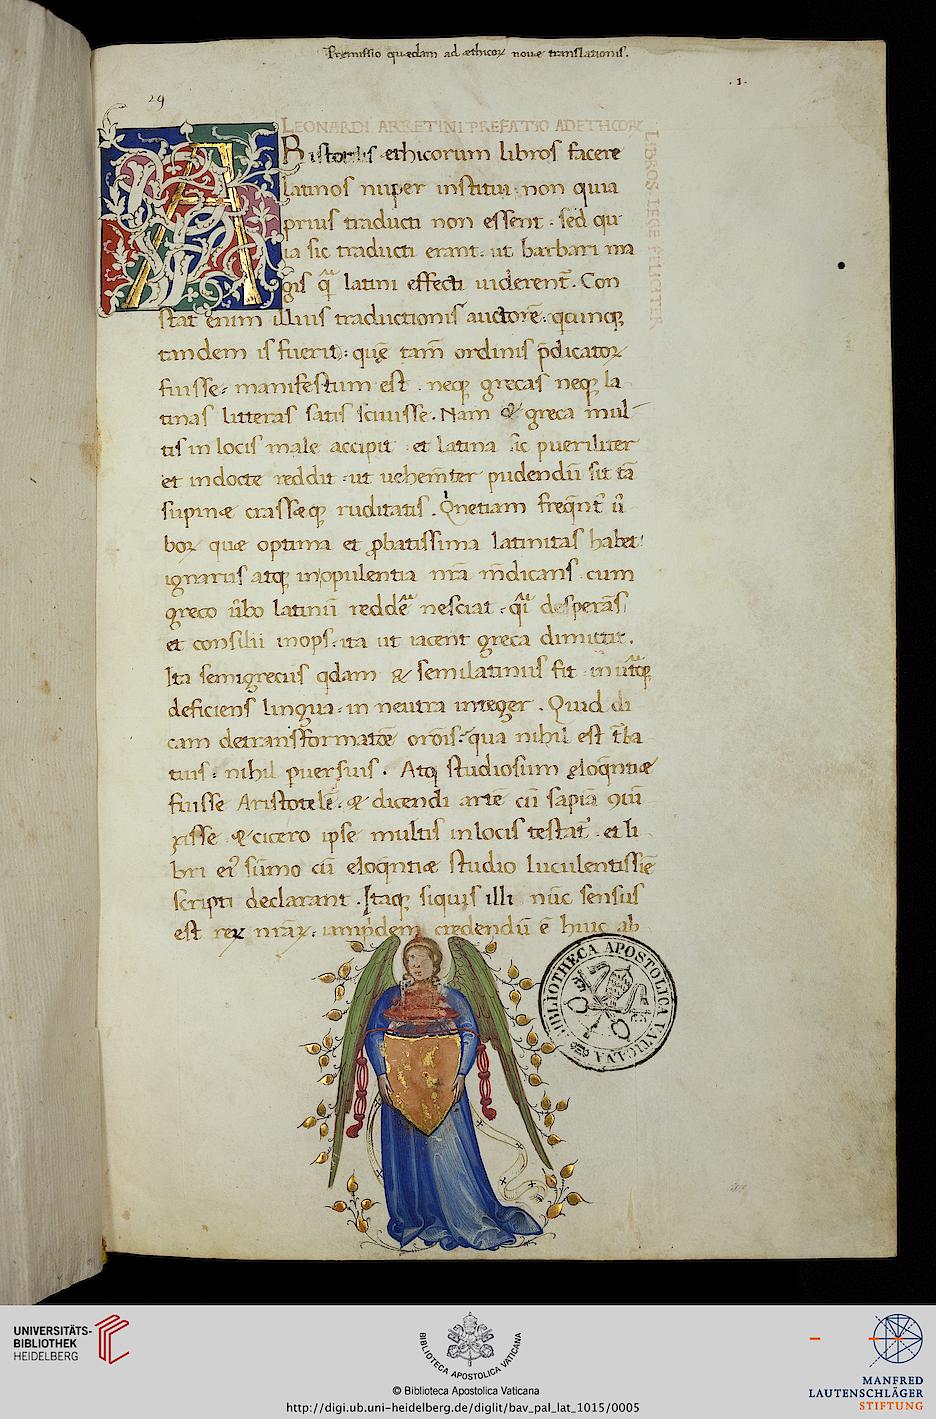 Premissio quædam ad æthicoꝝ nouæ translationis.
.1.
29
LEONARDI ARRETINI PREFATIO AD ETHICOR
LIBROS LEGE FELICITER
ARistotelis ethicorum libros facere
latinos nuper institui · non quia
prius traducti non essent · sed qu
ia sic traducti erant · ut barbari ma
gis q̃ latini effecti uiderent̃. Con
stat enim illius traductionis auctorẽ · qcunqꝫ
tandem is fuerit : quẽ tam̃ ordinis p̃dicatoꝝ
fuisse · manifestum est · neqꝫ grecas neqꝫ la
tinas litteras satis sciuisse. Nam & greca mul
tis in locis male accipit · et latina sic pueriliter
et indocte reddit · ut uehem̃ter pudendũ sit tã
supinæ crassæqꝫ ruditatis. Qnetiam freq̃nt̃ ũ
boꝝ quæ optima et ꝓbatissima latinitas habet
ignarus atqꝫ in opulentia nr̃a m̃dicans · cum
greco ũbo latinũ reddẽ nesciat · q̃i desperãs
et consilii inops · ita ut iacent greca dimittit.
Ita semigrecus qdam & semilatinus fit · in utr̃qꝫ
deficiens lingua · in neutra integer. Quid di
cam de transformatõe or̃ois · qua nihil est t̃ba
tius · nihil peruersius. Atqꝫ studiosum eloq̃ntiæ
fuisse Aristotelẽ · & dicendi artẽ cũ sapiã ꝯiũ
xisse & cicero ipse multis in locis testat̃ · et li
bri ei᷒ sũmo cũ eloq̃ntiæ studio luculentissiẽ
scripti declarant. Itaqꝫ siquis illi nũc sensus
est reꝝ nr̃aꝝ · iampridem credendũ ẽ huic ab
BIBLIOTHECA APOSTOLICA VATICANA
UNIVERSITÄTS-
BIBLIOTHEK
HEIDELBERG
BIBLIOTECA APOSTOLICA VATICANA
© Biblioteca Apostolica Vaticana
http://digi.ub.uni-heidelberg.de/diglit/bav_pal_lat_1015/0005
MANFRED
LAUTENSCHLÄGER
STIFTUNG